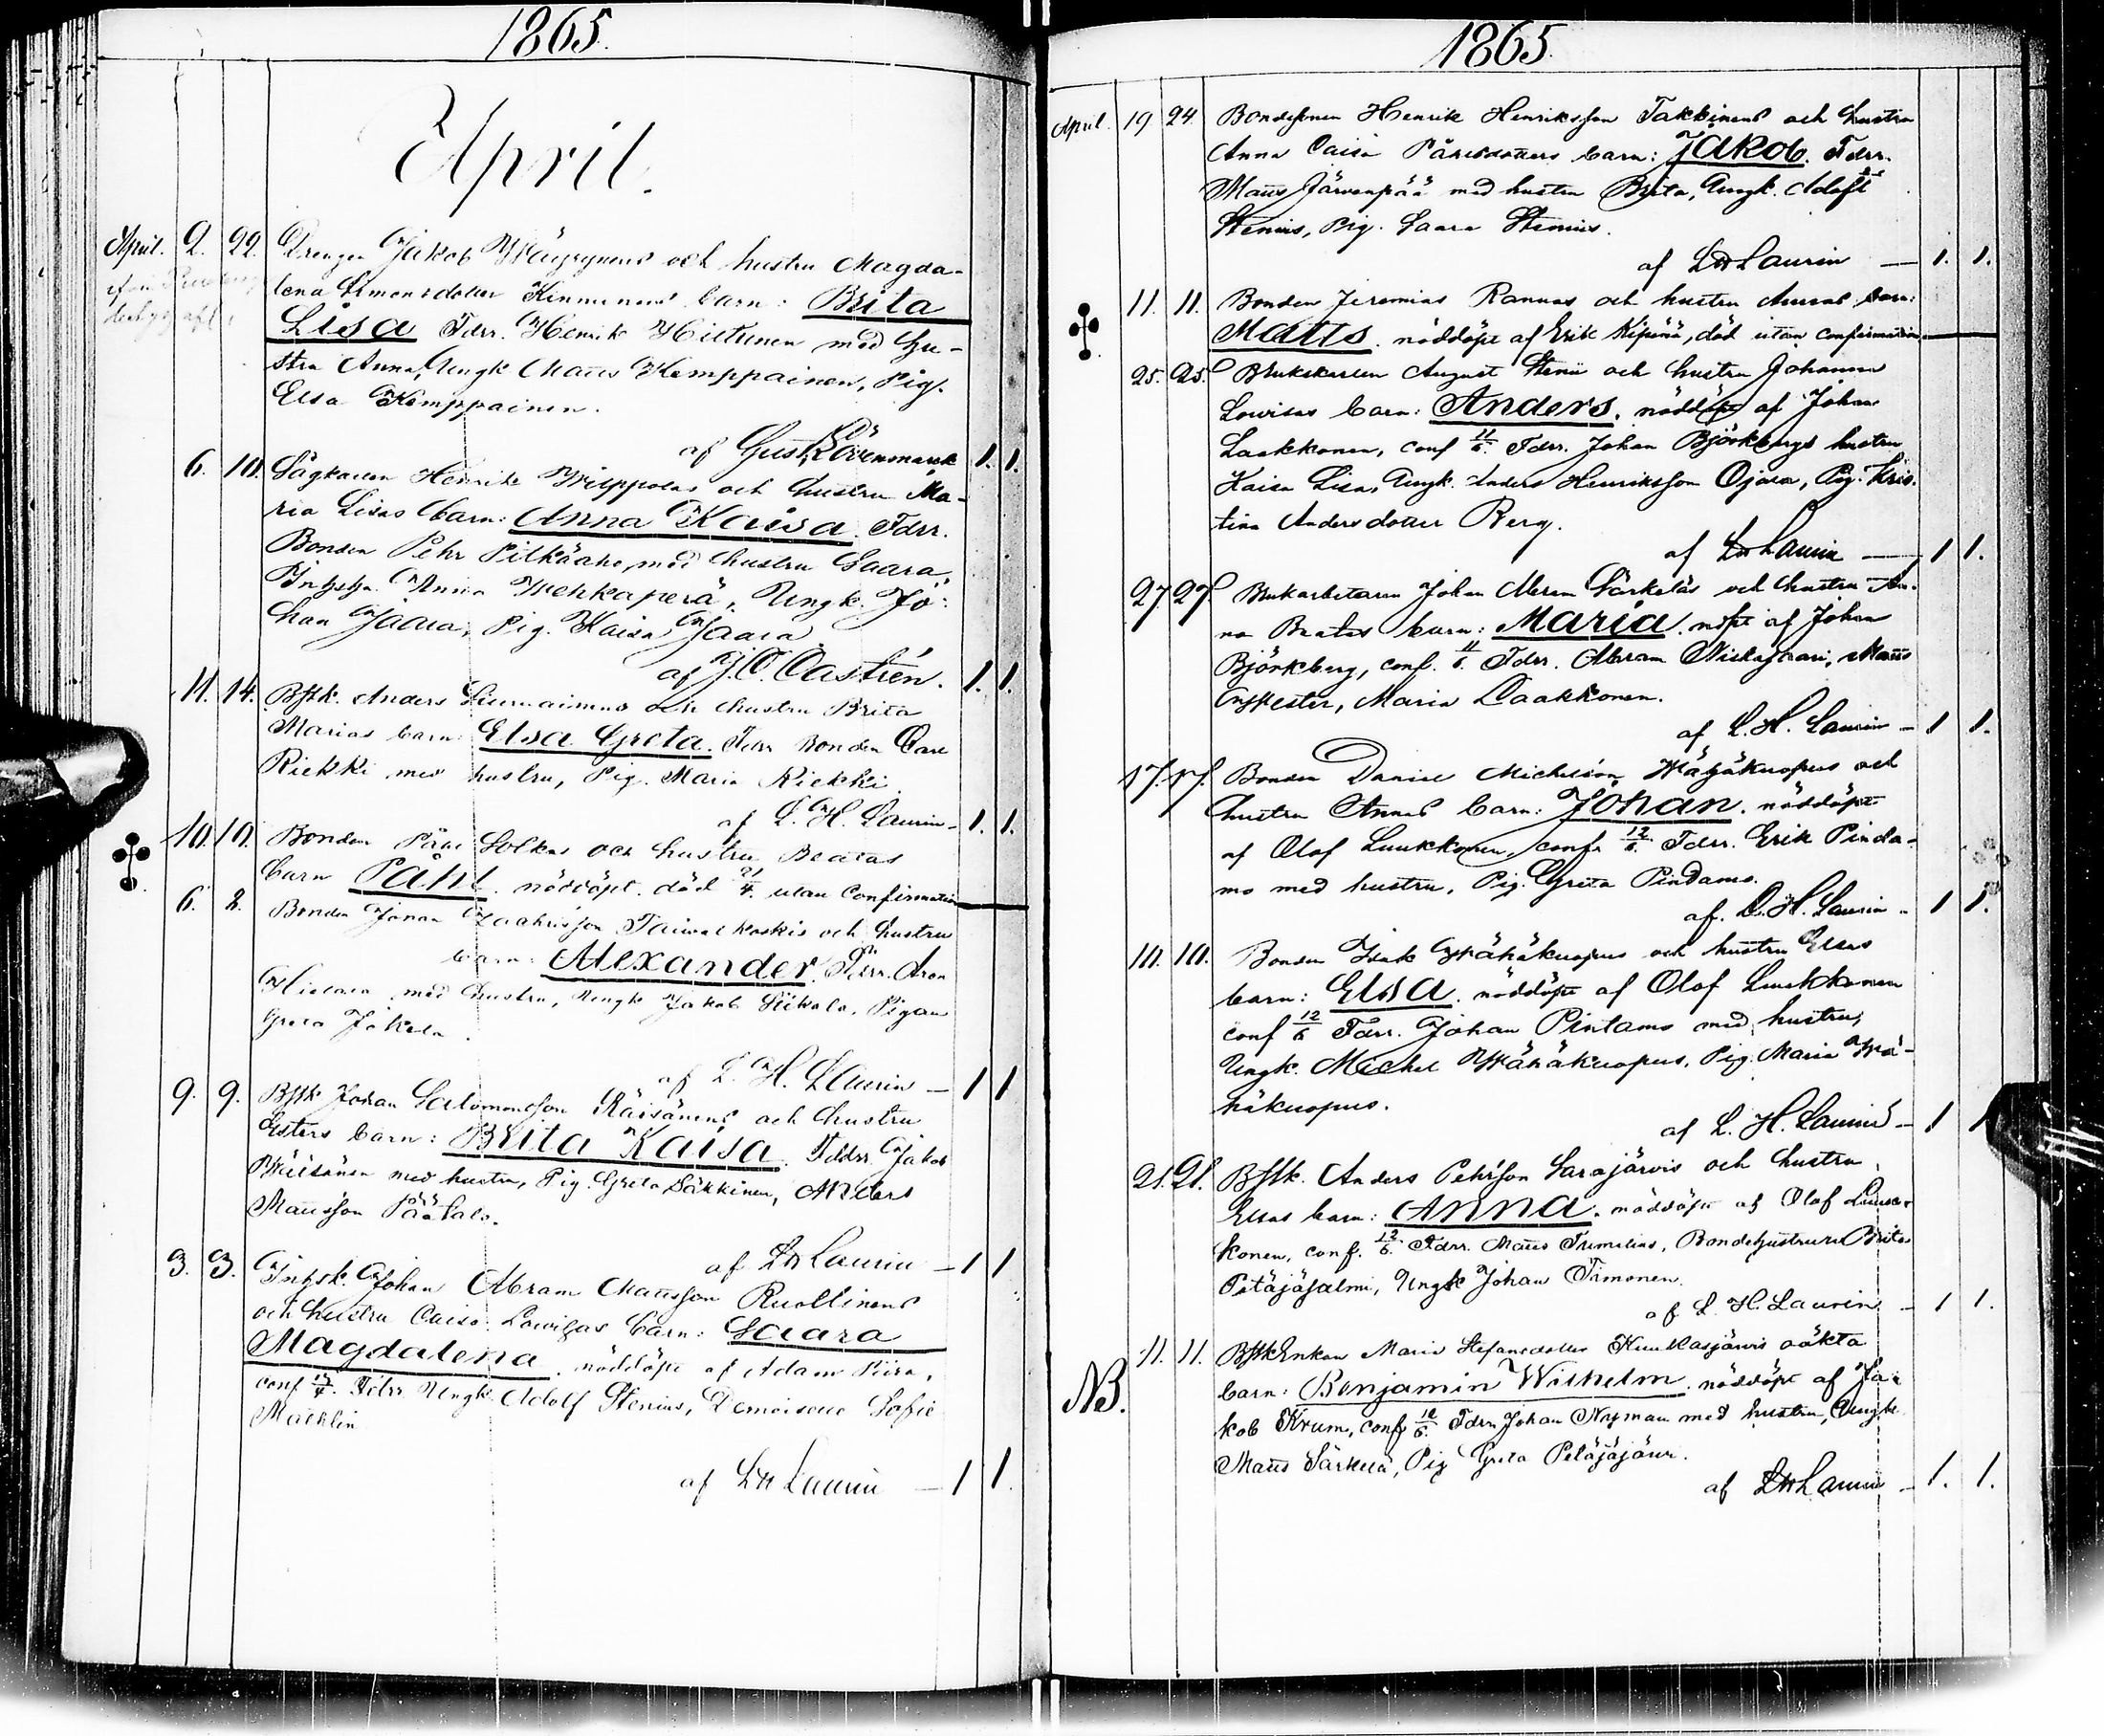 1865.
April.
April. 2. 22. Drengen Jakob Wäyrynens och hustru Magda-
lena Simonsdotter Kinnunens barn: Brita
Lisa Fdrr. Henrik Hiltunen med hu-
stru Anna, Ungk Matts Kemppainen, Pig.
Elsa Kemppainen.
af Gust. Lövenmarck 1. 1.
6. 10. Sågkarlen Henrik Wilppolas och hustru Ma-
ria Lisas barn: Anna Kaisa. Fdrr.
Bonden Pehr Pitkäaho, med hustru Saara,
Anna Wehkaperä, Ungk. Jo-
han Jaara, Pig. Kaisa Jaara
af J. C. Castrén. 1. 1.
11. 14. Bstk. Anders och hustru Brita
Marias barn: Elsa Greta. Fdrr Bonden Carl
Riekki med hustru, Pig. Maria Riekki
af L. H. Laurin 1. 1.
10. 10. Bonden Påhl Solkas och hustru Beatas
barn Påhl. nöddöpt. död 21/4. utan confirmation
6. 8. Bonden Johan Taiwalkoskis och hustru
barn: Alexander. Fdrr. Aron
med hustru, Ungk Jakob Siikala, Pigan
Greta Jokela.
af L. H. Laurin – 1 1
9. 9. Bstk Johan Salomonsson Räisänens och hustru
Esters barn: Brita Kaisa. Fddrr. Jakob
Wäisänen med hustru, Pig. Greta Säkkinen, Anders
Mattsson Päätalo.
af LH Laurin – 1 1
3. 3. Inhsk. Johan Abram Mattsson Ruottinens
och hustru Caisa Lovisas barn: Saara
Magdalena. nöddöpt af Adam Piira,
conf 17/4. Fdrr Ungk. Adolf Stenius, Demoiselle Sofie
Macklin
af LH Laurin – 1 1.
1865.
April. 19 24. Bondesonen Henrik Henriksson Takkinens och hustru
Anna Caisa Påhlsdotters barn: Jakob. Fdrr.
Matts Järvenpää med hustru Brita, Ungk. Adolf
Stenius, Pig. Saara Stenius.
af LH Laurin – 1. 1.
11. 11. Bonden Jeremias Rannas och hustru Annas barn:
Matts. nöddöpt af Erik Kipinä, död utan confirmation
25. 25. Brukskarlen August Stenii och hustru Johanna
Lovisas barn: Anders. nöddöpt af Johan
Laakkonen, conf 11/6. Fdrr. Johan Björkbergs hustru
Kaisa Lisa, Ungk. Anders Henriksson Ojara, Pig. Kris-
tina Andersdotter Berg.
af LH Laurin – 1 1.
27. 27. Brukarbetaren Johan Abram Särkeläs och hustru An-
na Beatas barn: Maria. nöpt af Johan
Björkberg, conf. 11/6. Fdrr. Abram Niskajaari, Matts
Laakkonen, Maria Laakkonen.
af L. H. Laurin – 1 1.
17. 17. Bonden Daniel Michelson Wähäkuopus och
hustru Annas barn: Johan. nöddöpt
af Olof Luukkonen, conf. 12/6. Fdrr. Erik Pinda-
mo med hustru, Pig. Greta Pindamo.
af. L. H. Laurin – 1 1.
10. 10. Bonden Isak Wähäkuopus och hustru Elsas
barn: Elsa. nöddöpt af Olof Luukkonen
conf 12/6 Fdrr. Johan Pintamo med hustru,
Ungk. Michel Wähäkuopus, Pig. Maria Wä-
häkuopus.
af L. H. Laurin – 1 1
21. 21. Bstk. Anders Pehrsson Sarajärvis och hustru
Elsas barn: Anna. nöddöpt af Olof Luuk-
konen, conf. 12/6. Fdrr. Matts Tumelius, Bondehustrun Brita
Petäjäjalmi, Ungk Johan Timonen.
af L. H. Laurin – 1 1.
NB. 11. 11. BstkEnkan Maria Stefansdotter Kuukasjärvis oäkta
barn: Benjamin Wilhelm. nöddöpt af Ja-
kob Krum, conf 12/6. Fdrr Johan Nyman med hustru, Ungk
Matts Särkelä, Pig Greta Petäjäjärvi.
af LH Laurin – 1. 1.